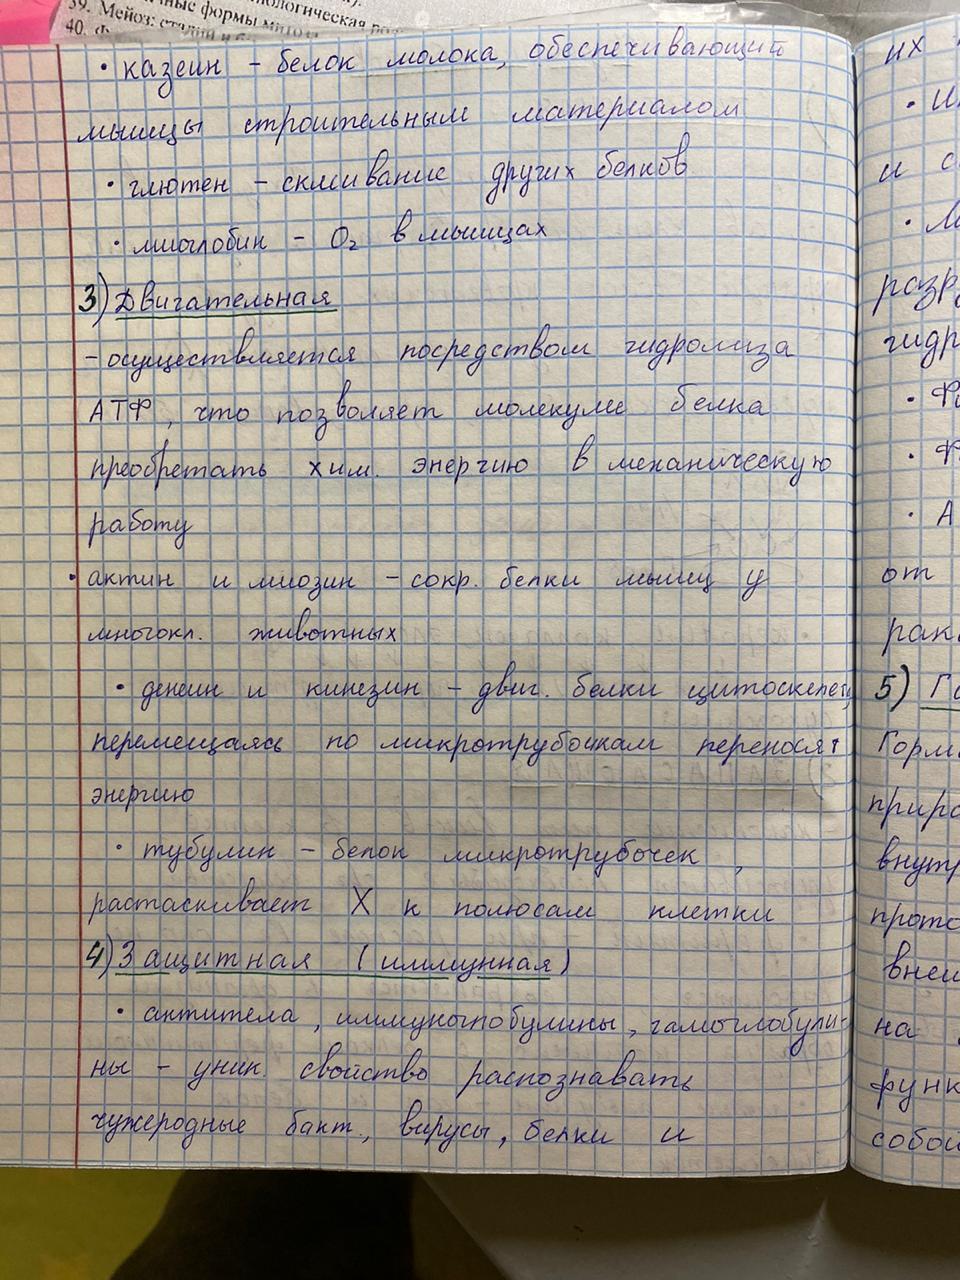 39. Мейоз: стадии и
40.
• казеин – белок молока, обеспечивающий
мышцы строительным материалом
• глютен – склеивание других белков
• миоглобин – O₂ в мышцах
3) Двигательная
– осуществляется посредством гидролиза
АТФ, что позволяет молекуле белка
преобретать хим. энергию в механическую
работу
• актин и миозин – сокр. белки мышц у
многокл. животных
• денеин и кинезин – двиг. белки цитоскелета,
перемещаясь по микротрубочкам переносят
энергию
• тубулин – белок микротрубочек,
растаскивает X к полюсам клетки
4) Защитная (иммунная)
• антитела, иммуноглобулины, гамоглобули-
ны – уник. свойство распознавать
чужеродные бакт., вирусы, белки и
их
• 
и
•
разр
гидр
• 
• 
• А
от
рак
5) Г
Горм
приро
внутр
прото
внеш
на
функ
собой